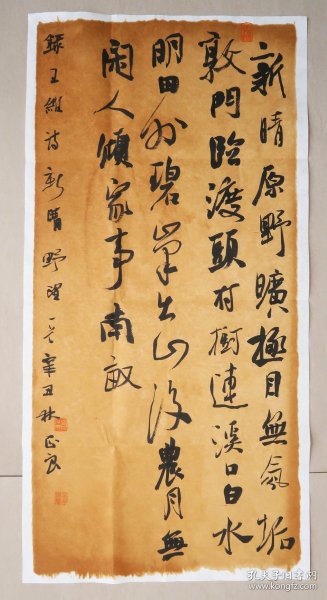 新晴原野曠極目無氛垢
郭門臨渡頭村樹連溪口白水
明田外碧峯出山後農月無
閑人傾家事南畝
錄王維詩新晴野望一首辛丑林正良
孔夫子旧书网